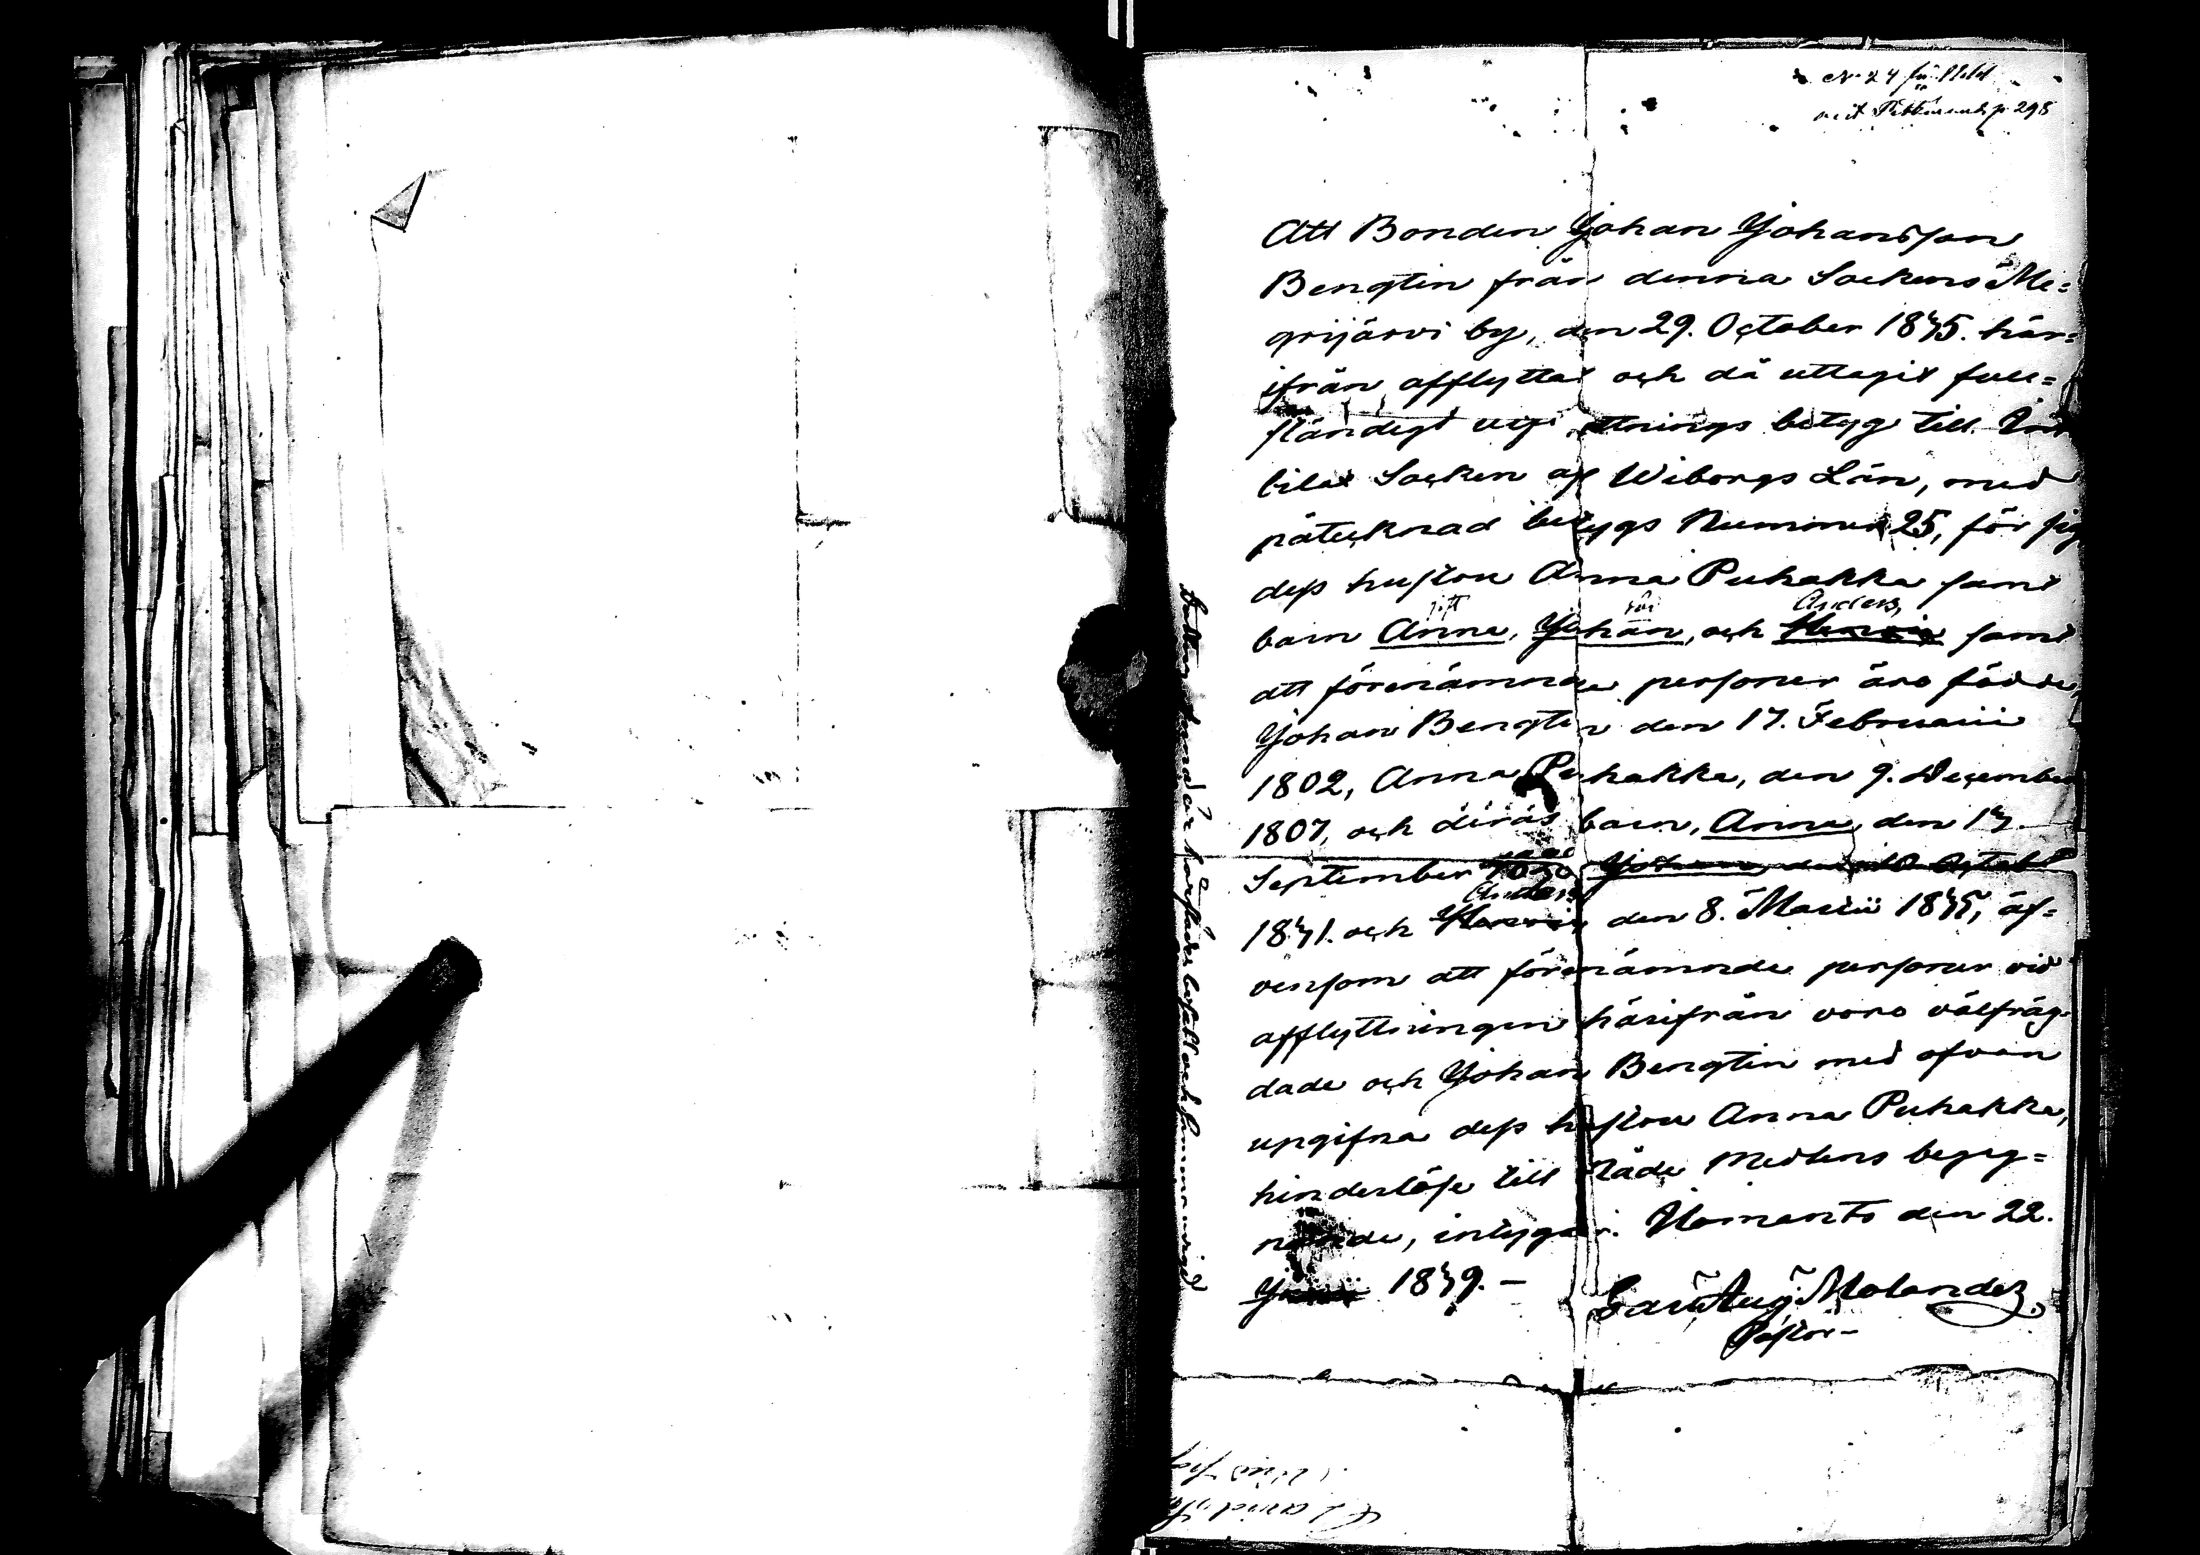 N. 24
p. 298
Att Bonden Johan Johansson
Bengtin från denna Sockens Me=
grijärvi by, den 29. October 1845. här=
ifrån afflyttat och då uttagit full=
ständigt ttnings betyg till
bilax Socken af Wiborgs Län, med
påtecknad betygs Nummer 25, för sig
dess hustru Anna Puhakka samt
gift
Anders,
barn Anna, Johan, och samt
att förenämnde personer äro födde,
Johan Bengtin den 17. Februarii
1802, Anna Puhakka, den 9. December
1807, och deras barn, Anna, den 17
September Johan, den 10 Octob
Anders
1841. och den 8. Martii 1845, äf=
vensom att förenämnde personer vid
afflyttningen härifrån voro välfräg-
dade och Johan Bengtin med ofvan
upgifna dess hustru Anna Puhakka,
hinderlöse till Nåde Medlens begag=
nande, intygar. Ilomants den 22.
1849. –
Molander
Pastor –